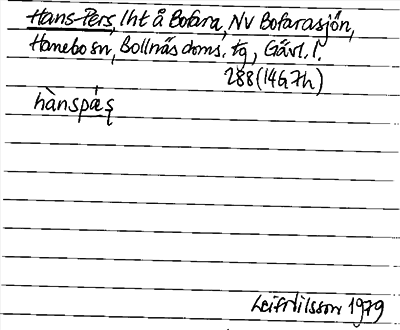 Hans-Pers, lht å Bofara, NV Bofarasjön,
Hanebo sn, Bollnäs doms. tg, Gävl. l.
288 (14G7h)
hànspá̤s̩
Leif Nilsson 1979